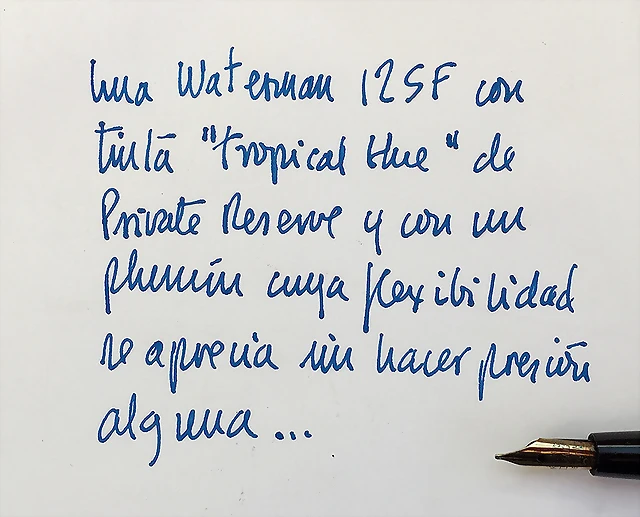 Una Waterman 12SF con
tinta "tropical blue" de
Private Reserve y con un
plumín cuya flexibilidad
se aprecia sin hacer presión
alguna...